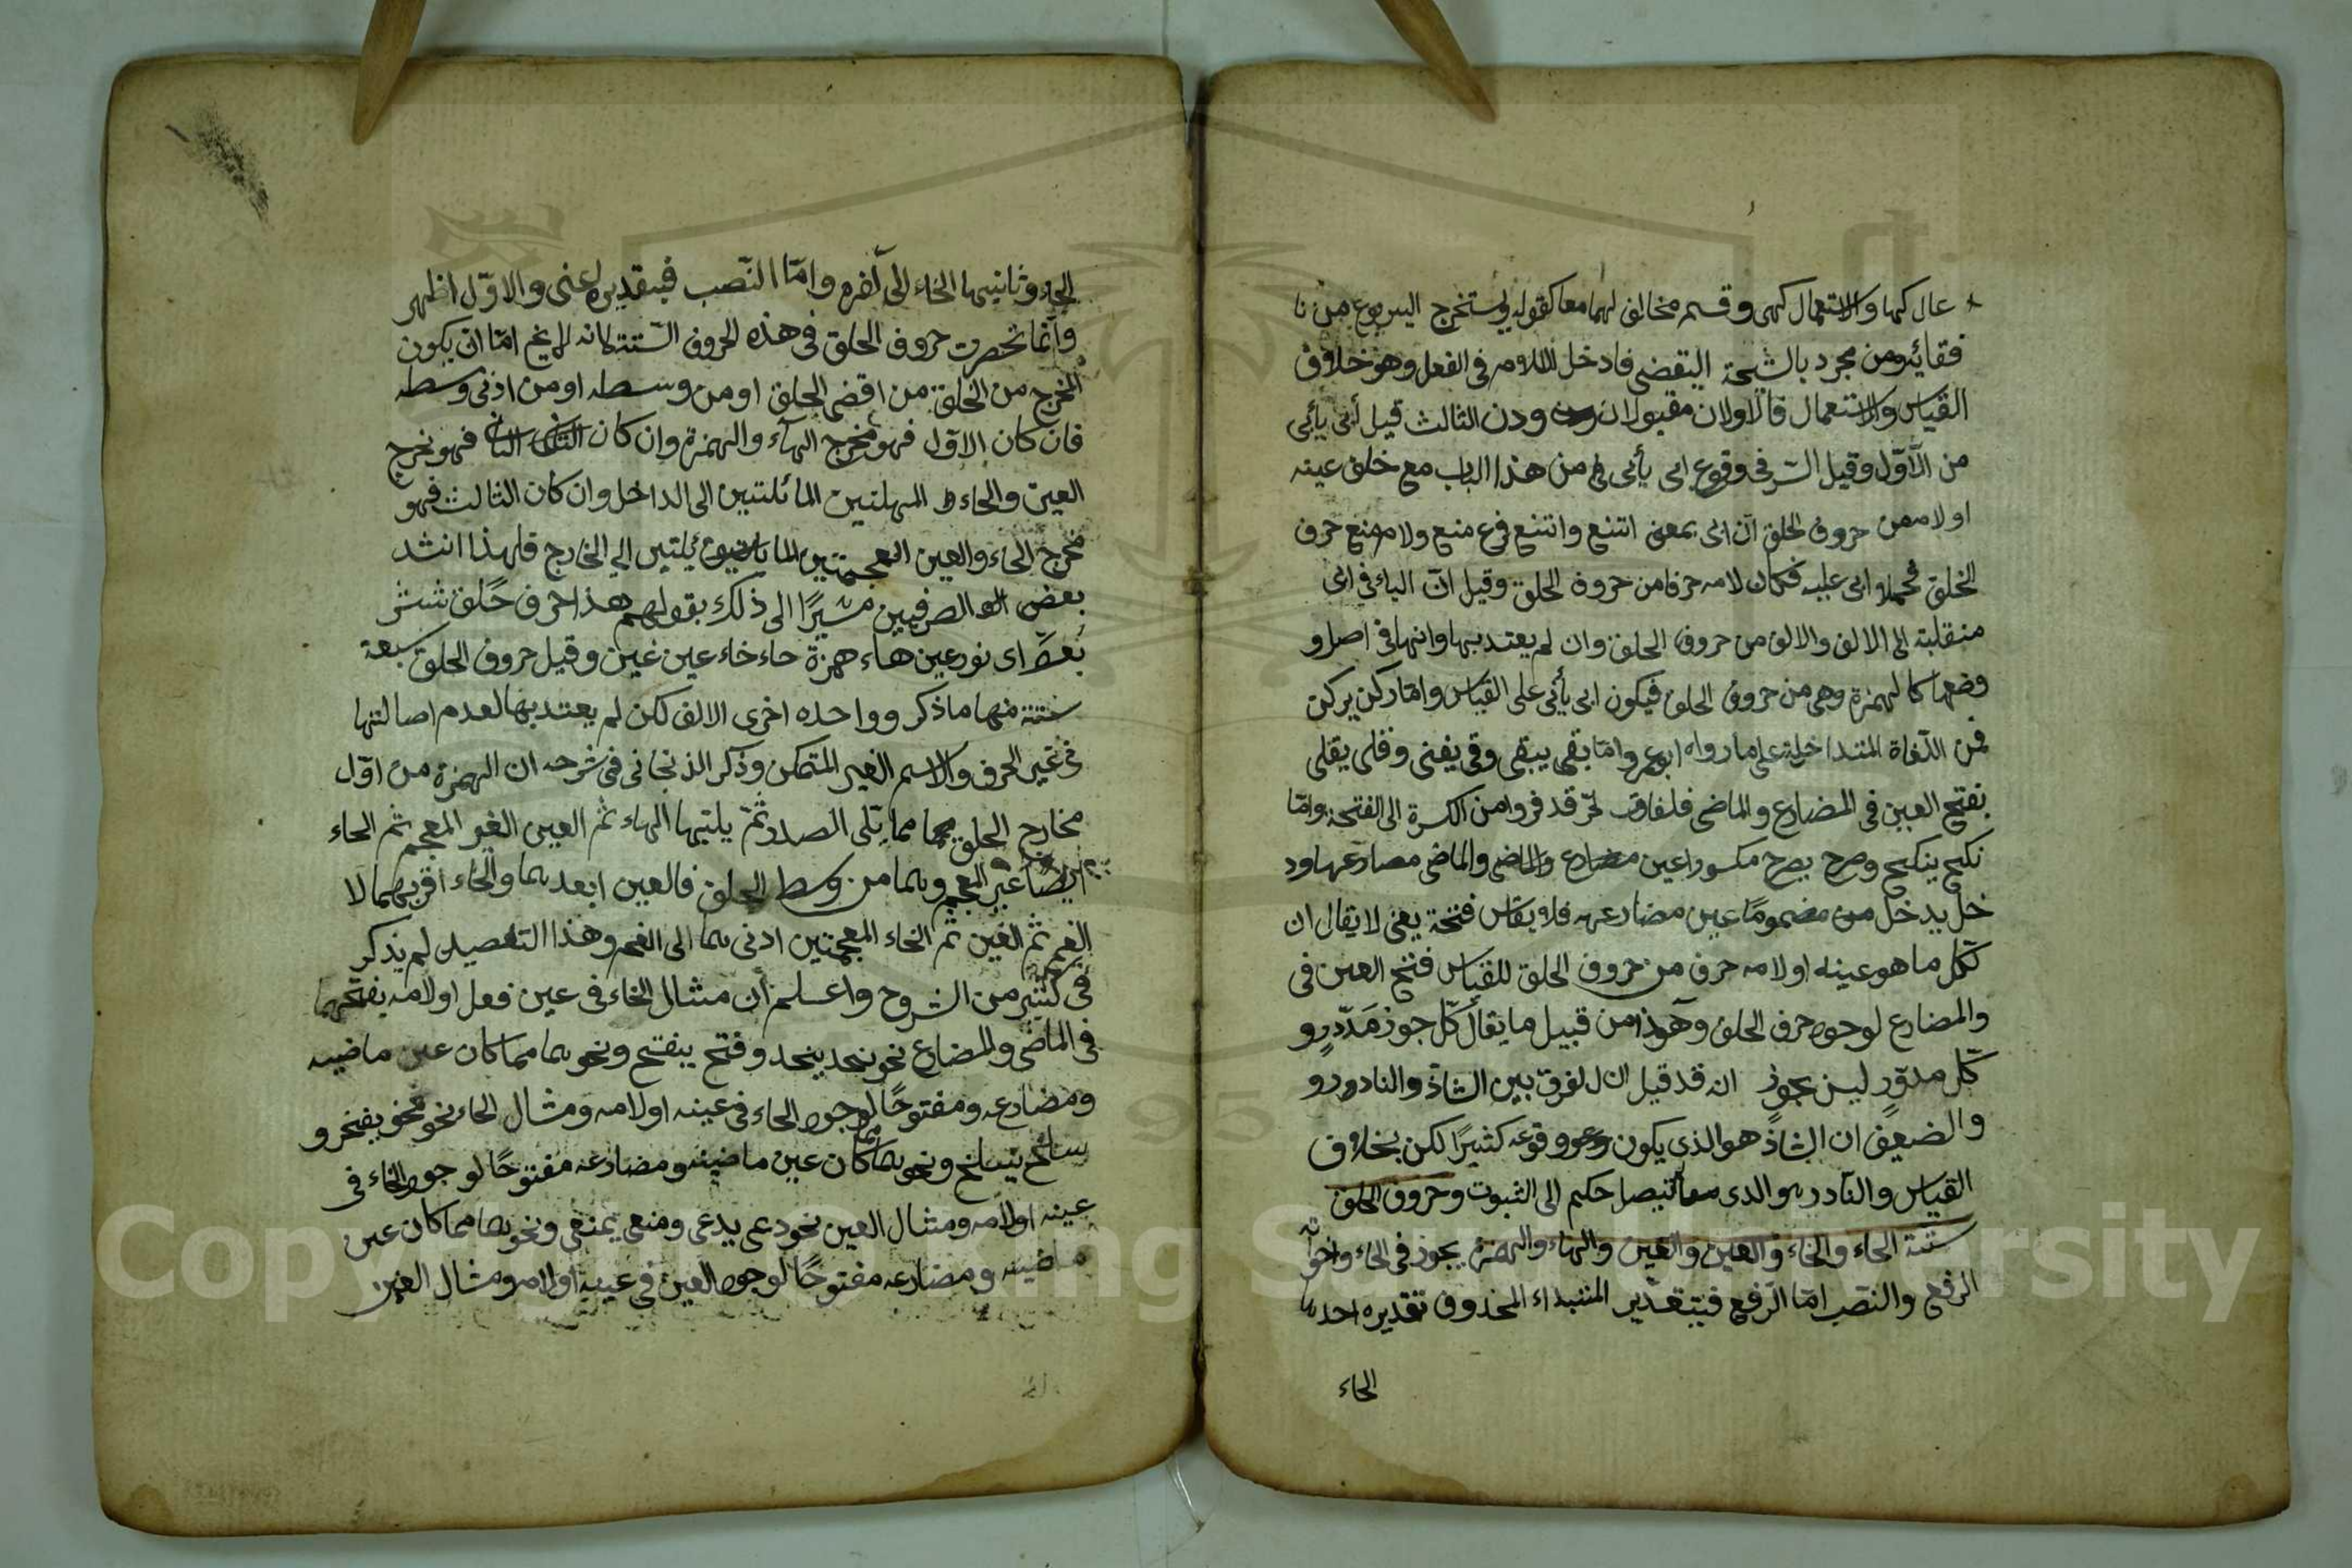 عال كها والاستعمال كهى وقسم مخالف لهما معا كقوله ويستخرج اليربوع من نا
فقائه ومن مجرد بالشيحة اليتقضى فادخل اللام فى الفعل وهو خلاف
القياس والاستعمال فالاولان مقبولان ودن الثالث قيل أبى يأبى
من الأوّل وقيل السّر فى وقوع ابى يأبى من هذا الباب مع خلق عينه
او لامه من حروف الحلق انّ ابى بمعنى امتنع وامتنع فرع منع ولامه منع حرف
الحلق فحملا ابى عليه فكان لامه حرفا من حروف الحلق وقيل انّ الياء فى ابى
منقلبة الى الالف والالف من حروف الحلق وان لم يعتد بها وانها فى اصل و
وضعها كالهمزة وهى من حروف الحلق فيكون ابى يأبى على القياس وامّا ركن يركن
فمن اللّغاة المتداخلة على ما رواه ابو عمرو وامّا بقى يبقى وفنى يفنى وقلى يقلى
بفتح العين فى المضارع والماضى فلغات قد فروا من الكسرة الى الفتحة وامّا
نكح ينكح وصرح يصرح مكسورا عين والماضى مضارعهما ود
خل يدخل مضموما عين مضارعه فلا يقاس فتحة يعنى لا يقال ان
كلّ ما هو عينه او لامه حرف من حروف الحلق للقياس فتح العين فى
والمضارع لوجود حرف الحلق وهذا من قبيل ما يقال كلّ جوز مدّور و
كلّ مدوّر ليس بجوز انه قد قيل ان الفرق بين الشاذّ والنادر و
والضعيف ان الشاذ هو الذى يكون وقوعه كثيرًا لكن بخلاف
القياس والنّادر هو الذى حكم الى الثبوت وحروف الحلق
ستة الحاء والخاء والعين والغين والهاء والهمزة يجوز فى الحاء واخواته
الرفع والنصب امّا الرّفع فبتقدير المبتداء المحذوف تقديره احدها
الحاء
الحاء وثانيها الخاء الى آخره وامّا النّصب فبتقدير اعنى والاوّل اظهر
وانّما تحصرت حروف الحلق فى هذه الحروف السّتة لانه لا يخ امّا ان يكون
المخرج من الحلق من اقصى الحلق او من وسطه او من ادنى وسطه
فان كان الاوّل فهو مخرج الهآء والهمزة وان كان الثانى فهو مخرج
العين والحاء المهملتين المائلتين الى الداخل وان كان الثالث فهو
مخرج الخاء والغين المعجمتين الى الخارج فلهذا انشد
بعض الصرفيين مشيرًا الى ذلك بقولهم هذا حرف حلق شش
بعدّ اى نور عين هاء همزة حاء خاء عين غين وقيل حروف الحلق سبعة
ستة منها ما ذكر وواحده اخرى الالف لكن لم يعتد بها لعدم اصالتها
فى غير الحرف والاسم الغير المتمكن وذكر الذنجانى فى شرحه ان الهمزة من اوّل
مخارج الحلق مما يلى الصدر ثمّ يليها الهاء ثم العين الغير المعجم ثم الحاء
ايضا غير المعجم وهما من وسط الحلق فالعين ابعدهما والحاء اقربهما لا
الفم ثم الغين ثم الخاء المعجمتين ادنى هما الى الفم وهذا التفصيل لم يذكر
فى كثير من الشروح واعلم أن مثال الحاء فى عين فعل او لامه بفتحهما
فى الماضى والمضارع نحو نحد ينحد وفتح يفتح ونحوهما مما كان عين ماضيه
ومضارعه ومفتوحًا لوجود الحاء فى عينه او لامه ومثال الخاء نحو فخر يفخر و
سلخ يسلخ ونحوهما مما كان عين ماضيه ومضارعه مفتوحًا لوجود الخاء فى
عينه او لامه ومثال العين نحو دعى يدعى ومنع يمنع ونحوهما مما كان عين
ماضيه ومضارعه مفتوحًا لوجود العين فى عينه او لامه ومثال الغين
Copyright © King Saud University